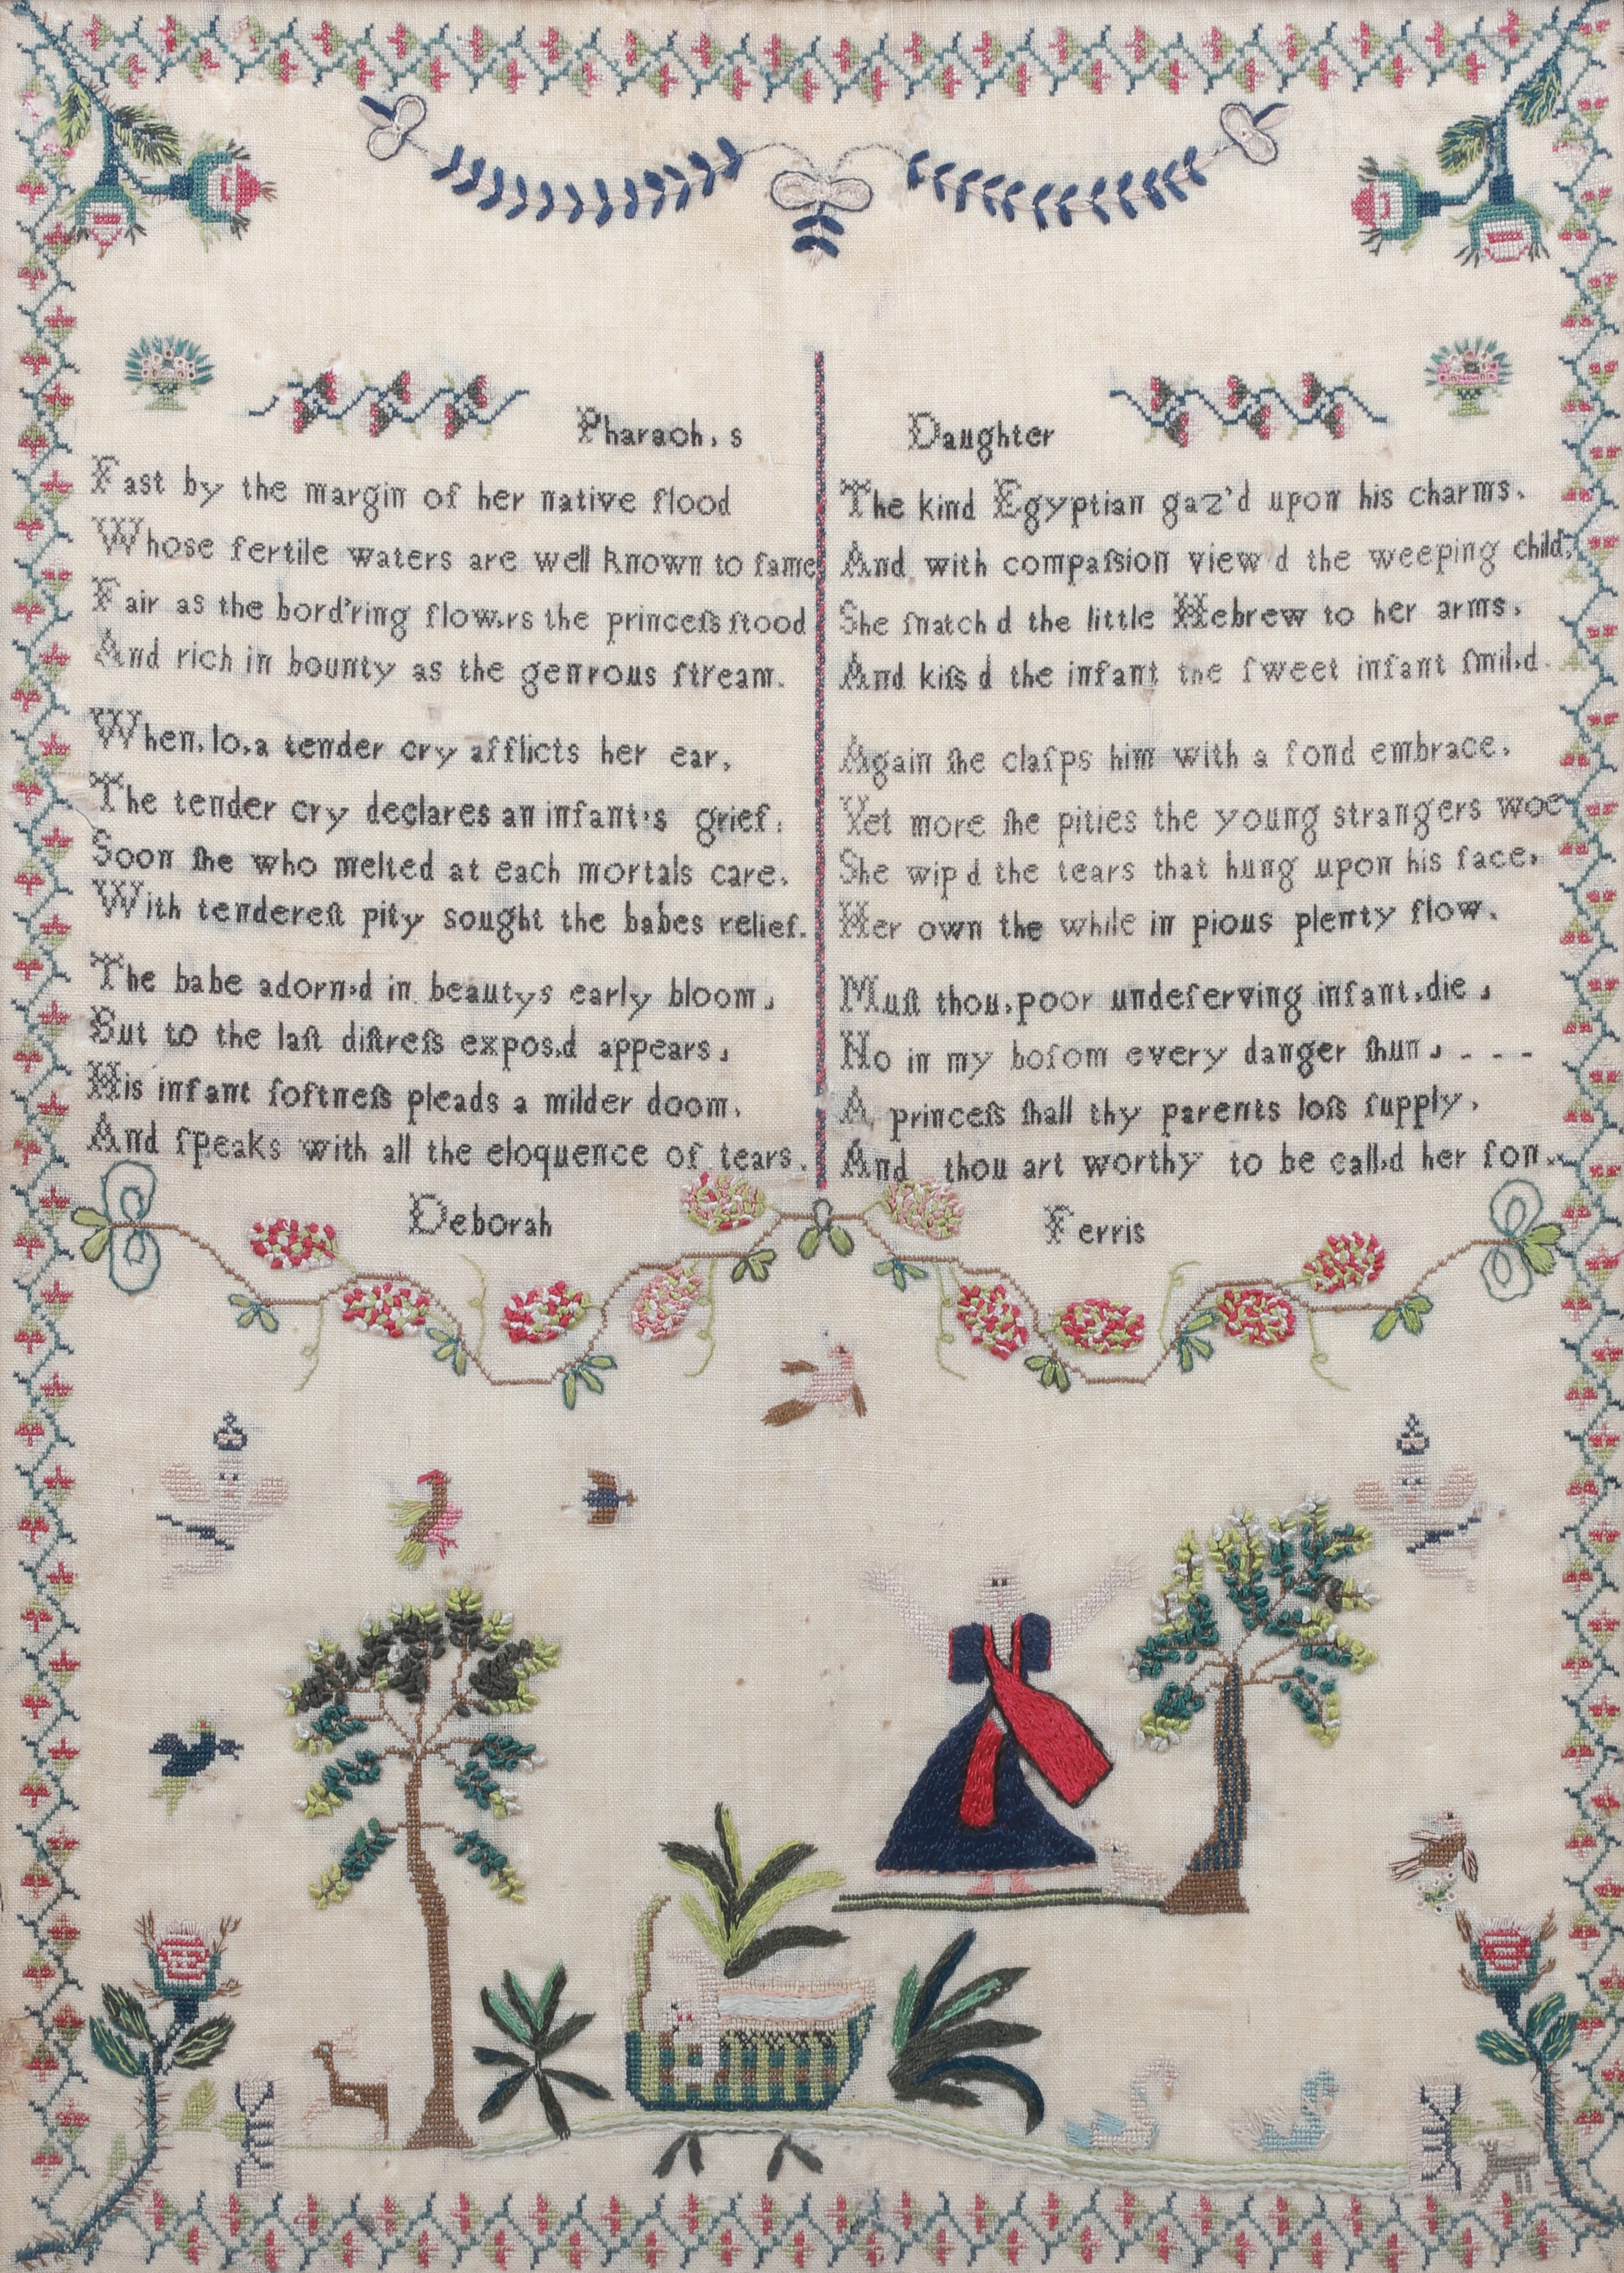 Pharaoh,s Daughter
Fast by the margin of her native flood
Whose fertile waters are well known to fame
Fair as the bord'ring flow,rs the princeſs ſtood
And rich in bounty as the genrous ſtream.
When,lo,a tender cry afflicts her ear,
The tender cry declares an infant,s grief,
Soon ſhe who melted at each mortals care,
With tendereſt pity sought the babes relief.
The babe adorn,d in beautys early bloom,
But to the laſt diſtreſs expos,d appears,
His infant ſoftneſs pleads a milder doom,
And ſpeaks with all the eloquence of tears.
The kind Egyptian gaz'd upon his charms,
And with compaſsion view d the weeping child,
She ſnatch d the little Hebrew to her arms,
And kiſs d the infant the ſweet infant ſmil,d.
Again ſhe claſps him with a fond embrace,
Yet more ſhe pities the young strangers woe
She wip d the tears that hung upon his face,
Her own the while in pious plenty flow,
Muſt thou,poor undeſerving infant,die,
No in my boſom every danger ſhun, - - -
A princeſs ſhall thy parents loſs ſupply,
And thou art worthy to be call,d her ſon.
Deborah Ferris